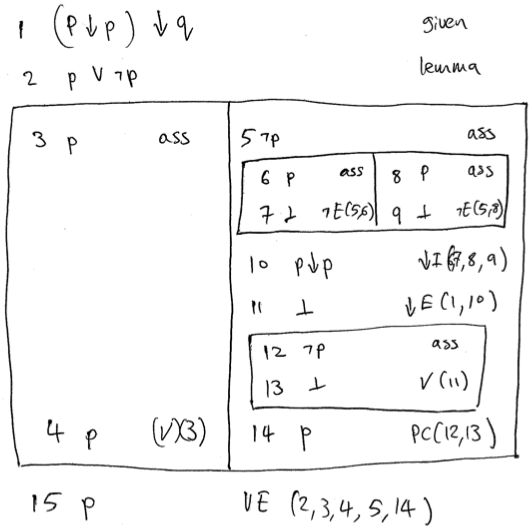 1 (P↓P) ↓q given
2 p ∨ ¬p lemma
3 p ass
4 p (✓)(3)
5 ¬p ass
6 p ass
7 ⊥ ¬E(5,6)
8 p ass
9 ⊥ ¬E(5,8)
10 p↓p ↓I(6,7,8,9)
11 ⊥ ↓E (1,10)
12 ¬p ass
13 ⊥ ✓(11)
14 p PC(12,13)
15 p ∨E (2,3,4,5,14)